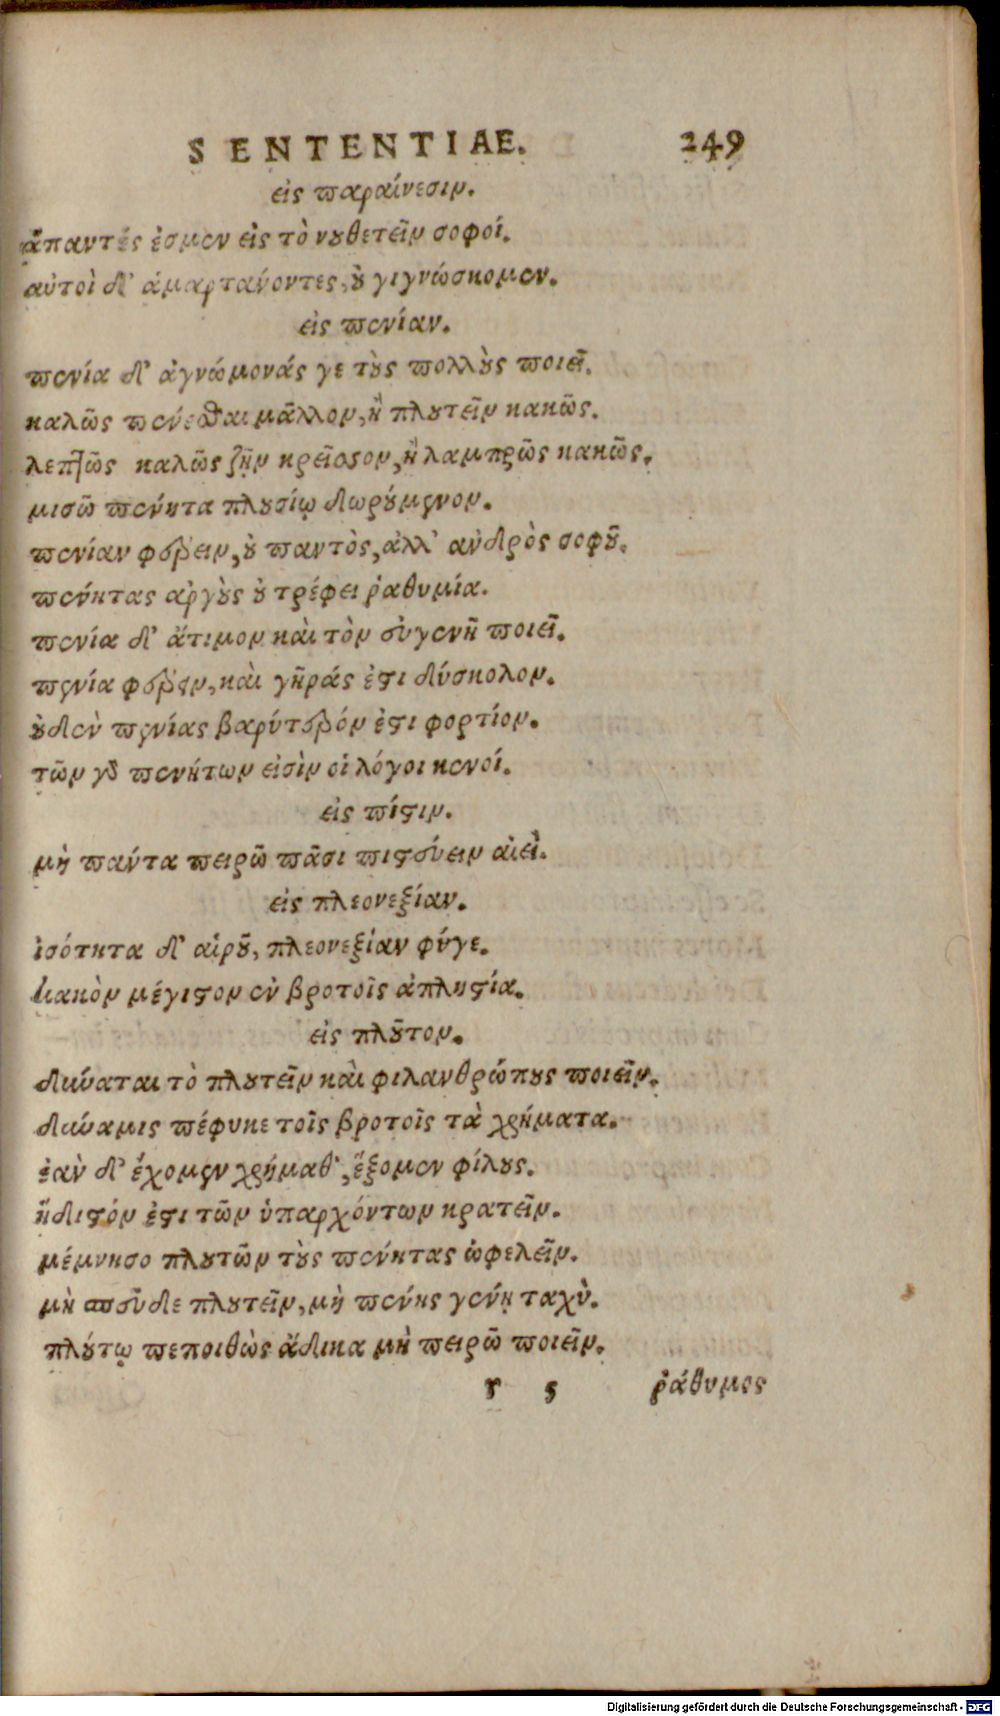 SENTENTIAE. 249
εἰς παραίνεσιν.
ἅπαντές ἐσμεν εἰς τὸ νουθετεῖν σοφοί.
αὐτοὶ δ' ἁμαρτάνοντες, οὐ γιγνώσκομεν.
εἰς πενίαν.
πενία δ' ἀγνώμονάς γε τοὺς πολλοὺς ποιεῖ.
καλῶς πένεσθαι μᾶλλον, ἢ πλουτεῖν κακῶς.
λεπτῶς καλῶς ζῆν κρεῖσσον, ἢ λαμπρῶς κακῶς.
μισῶ πένητα πλουσίῳ δωρούμενον.
πενίαν φέρειν, οὐ παντὸς, ἀλλ' ἀνδρὸς σοφοῦ.
πένητας ἀργοὺς οὐ τρέφει ῥαθυμία.
πενία δ' ἄτιμον καὶ τὸν εὐγενῆ ποιεῖ.
πενίαν φέρειν, καὶ γῆράς ἐστι δύσκολον.
οὐδὲν πενίας βαρύτερόν ἐστι φορτίον.
τῶν γὰρ πενήτων εἰσὶν οἱ λόγοι κενοί.
εἰς πίστιν.
μὴ πάντα πειρῶ πᾶσι πιστεύειν ἀεί.
εἰς πλεονεξίαν.
ἰσότητα δ' αἱροῦ, πλεονεξίαν φύγε.
κακὸν μέγιστον ἐν βροτοῖς ἀπληστία.
εἰς πλοῦτον.
δύναται τὸ πλουτεῖν καὶ φιλανθρώπους ποιεῖν.
δύναμις πέφυκε τοῖς βροτοῖς τὰ χρήματα.
ἐὰν δ' ἔχομεν χρήμαθ', ἕξομεν φίλους.
ἥδιστόν ἐστι τῶν ὑπαρχόντων κρατεῖν.
μέμνησο πλουτῶν τοὺς πένητας ὠφελεῖν.
μὴ σπεῦδε πλουτεῖν, μὴ πένης γένῃ ταχύ.
πλούτῳ πεποιθὼς ἄδικα μὴ πειρῶ ποιεῖν.
r 5 ῥάθυμος
Digitalisierung gefördert durch die Deutsche Forschungsgemeinschaft - DFG